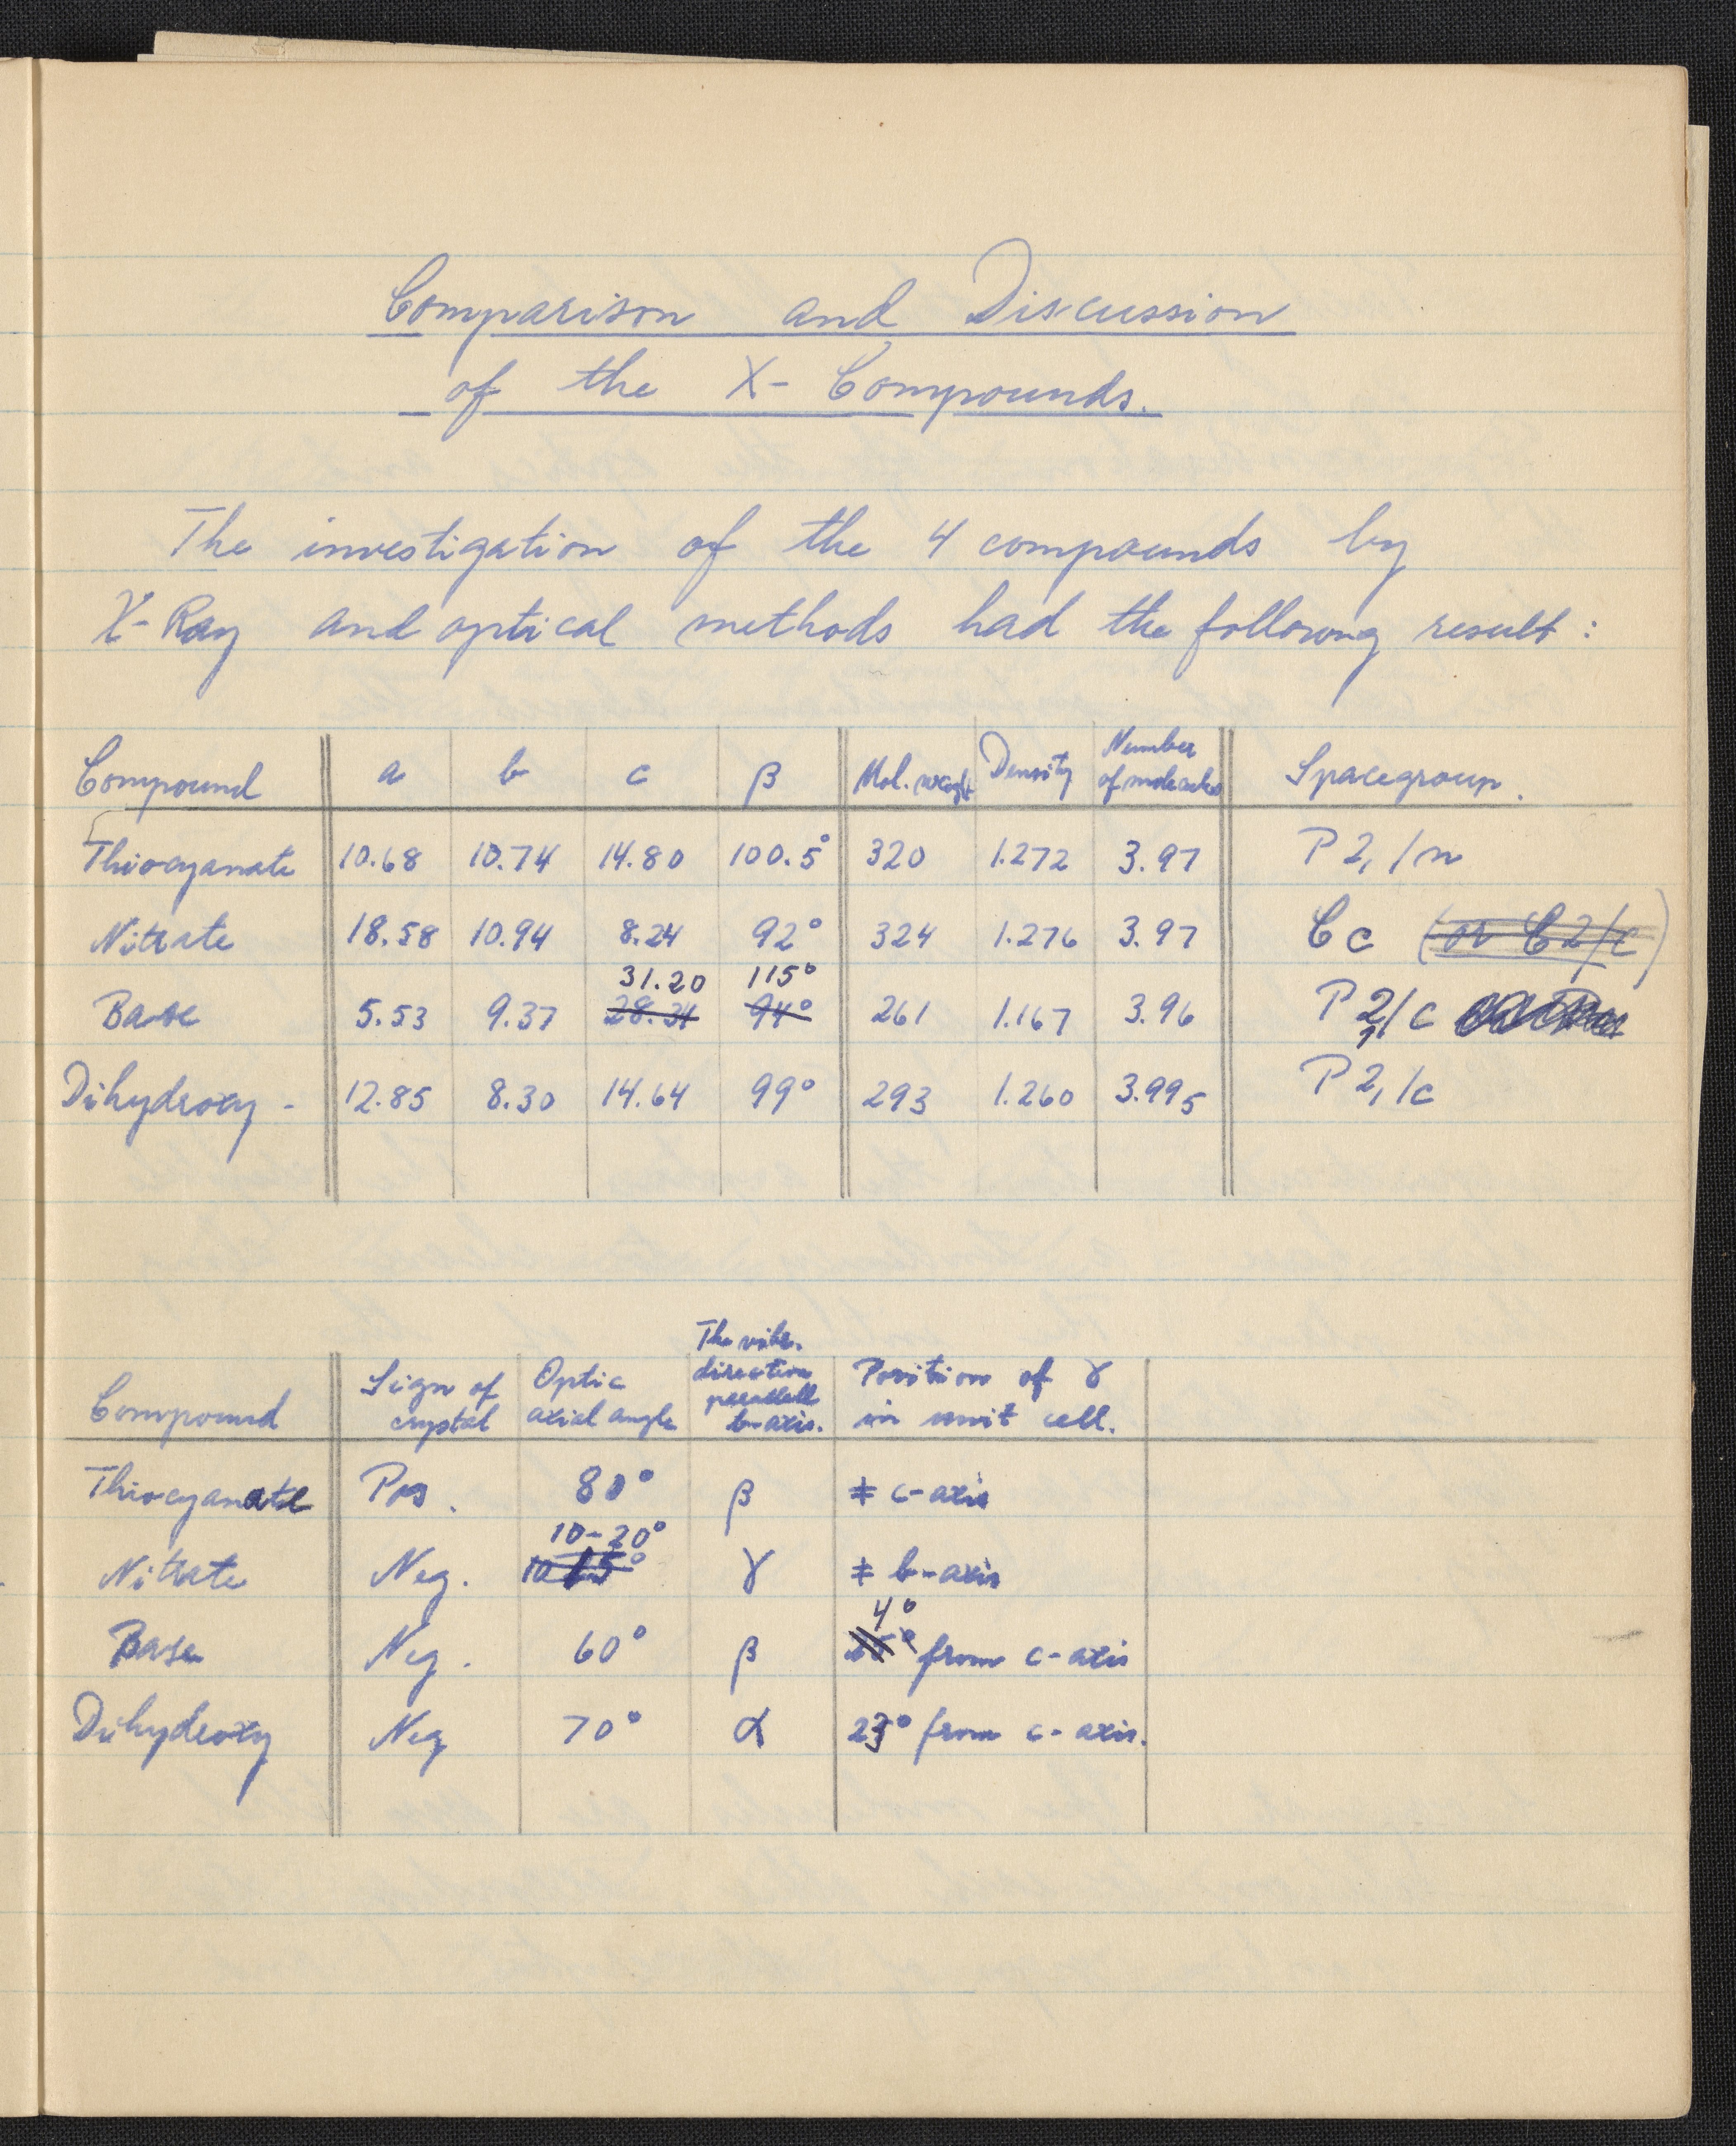 Comparison and Discussion
of the X- Compounds.
The investigation of the 4 compounds by
X-Ray and optical methods had the following result:
Compound a b c β Mol. weight Density Number of molecules Spacegroup.
Thiocyanate 10.68 10.74 14.80 100.5° 320 1.272 3.97 P2₁/n
Nitrate 18.58 10.94 8.24 92° 324 1.276 3.97 Cc (or C2/c)
31.20 115°
Base 5.53 9.37 28.34 94° 261 1.167 3.96 P2₁/c
Dihydroxy - 12.85 8.30 14.64 99° 293 1.260 3.995 P2₁/c
Compound Sign of crystal Optic axial angle The vibr. direction parallell b-axis. Position of γ in unit cell.
Thiocyanate Pos. 80° β ≠ c-axis
10-20°
Nitrate Neg. 10 15° γ ≠ b-axis
4°
Base Neg. 60° β from c-axis
Dihydroxy Neg 70° α 23° from c-axis.